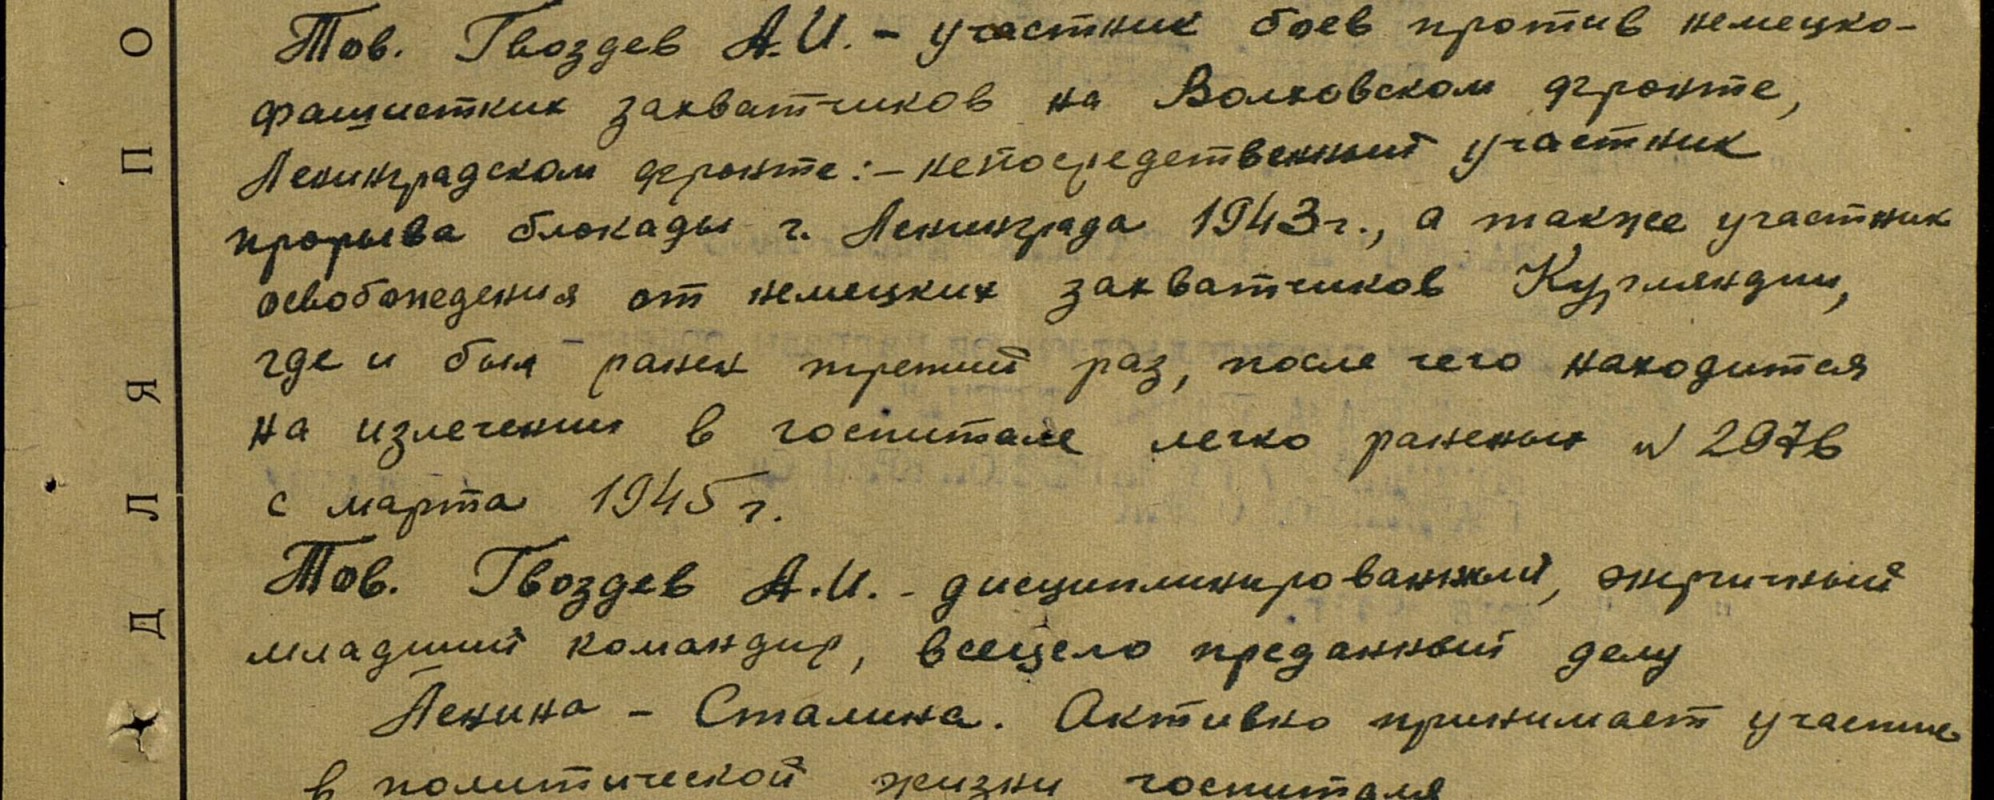 Тов. Гвоздев А.И. - участник боев против немецко-
фашистких захватчиков на Волховском фронте,
Ленинградском фронте:- непосредственный участник
прорыва блокады г. Ленинграда 1943г., а также участник
освобождения от немецких захватчиков Курляндии,
где и был ранен третий раз, после чего находится
на излечении в госпитале легко раненых N
с марта 1945г.
Тов. Гвоздев А.И. - дисциплинированный, энргичный
младший командир, всецело преданный делу
Ленина - Сталина. Активно принимает участие
в политической жизни госпиталя
ДЛЯ ПО